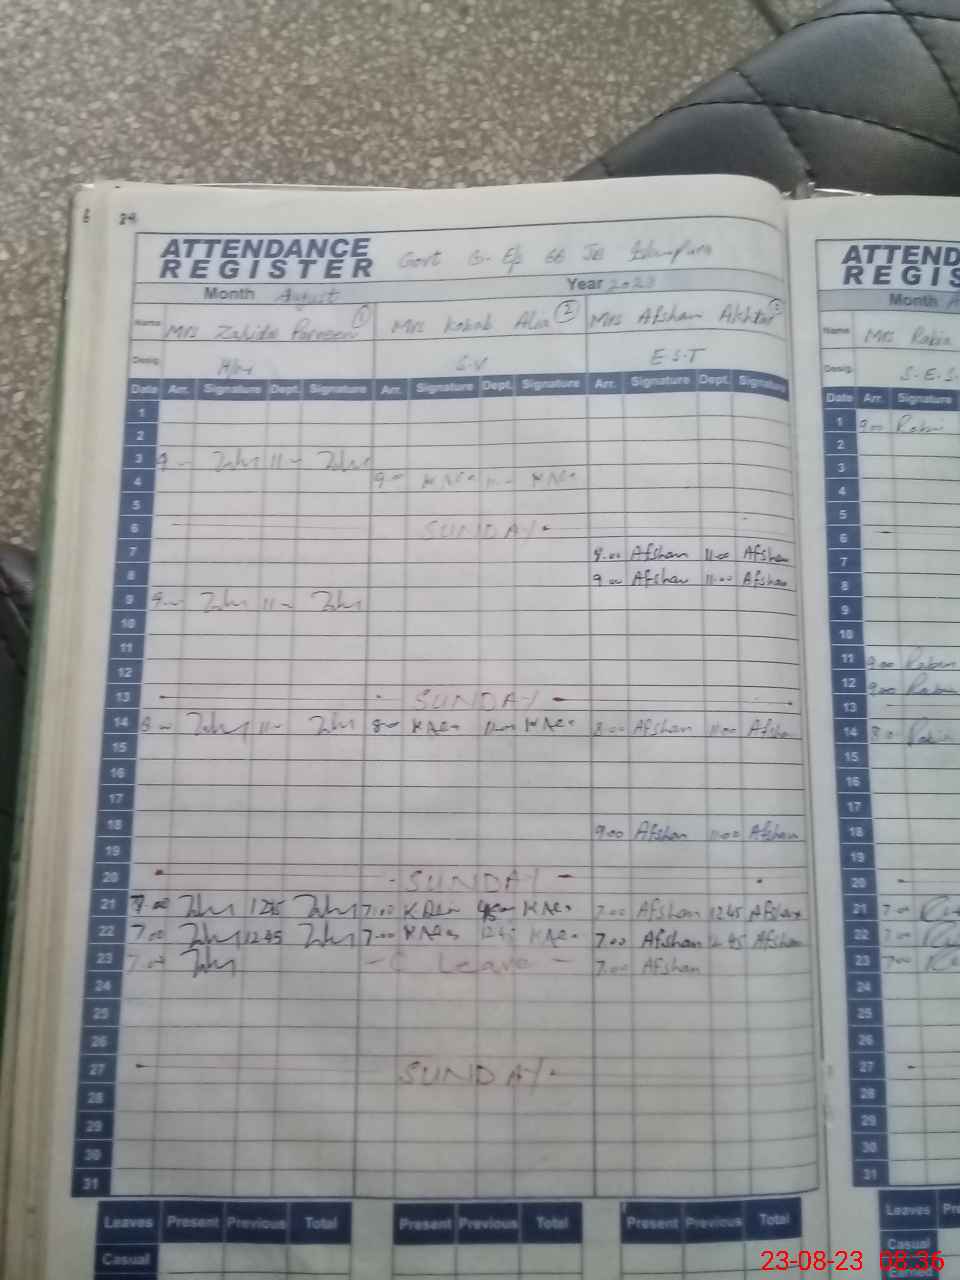 6 24
ATTENDANCE
REGISTER
Govt G. E/S
Month August Year 2023
Name Mrs Zahida Parveen 1 Mrs Kokab Alia 2 Mrs Afshan Akhtar 3
Desig. S.V E.S.T
Date Arr. Signature Dept. Signature Arr. Signature Dept. Signature Arr. Signature Dept. Signature
1
2
3 9 11
4 9 11
5
6 SUNDAY
7 8.00 Afshan 11.00 Afshan
8 9.00 Afshan 11.00 Afshan
9 9 11
10
11
12
13 SUNDAY
14 8 11 8 11 8.00 Afshan 11.00 Afshan
15
16
17
18 9.00 Afshan 11.00 Afshan
19
20 SUNDAY
21 7.00 1245 7.00 7.00 Afshan 12.45 Afshan
22 7.00 12.45 7.00 7.00 Afshan 12.45 Afshan
23 7.00 - C Leave - 7.00 Afshan
24
25
26
27 SUNDAY
28
29
30
31
Leaves Present Previous Total Present Previous Total Present Previous Total
Casual
ATTEND
REGIS
Month
Name Mrs Rabia
Desig. S.E.S.
Date Arr. Signature
1 9.00 Rabia
2
3
4
5
6
7
8
9
10
11 9.00 Rabia
12 9.00 Rabia
13
14 8.0 Rabia
15
16
17
18
19
20
21 7.00
22 7.00
23 7.00
24
25
26
27
28
29
30
31
Leaves Pre
Casual
Earned
23-08-23 08:36